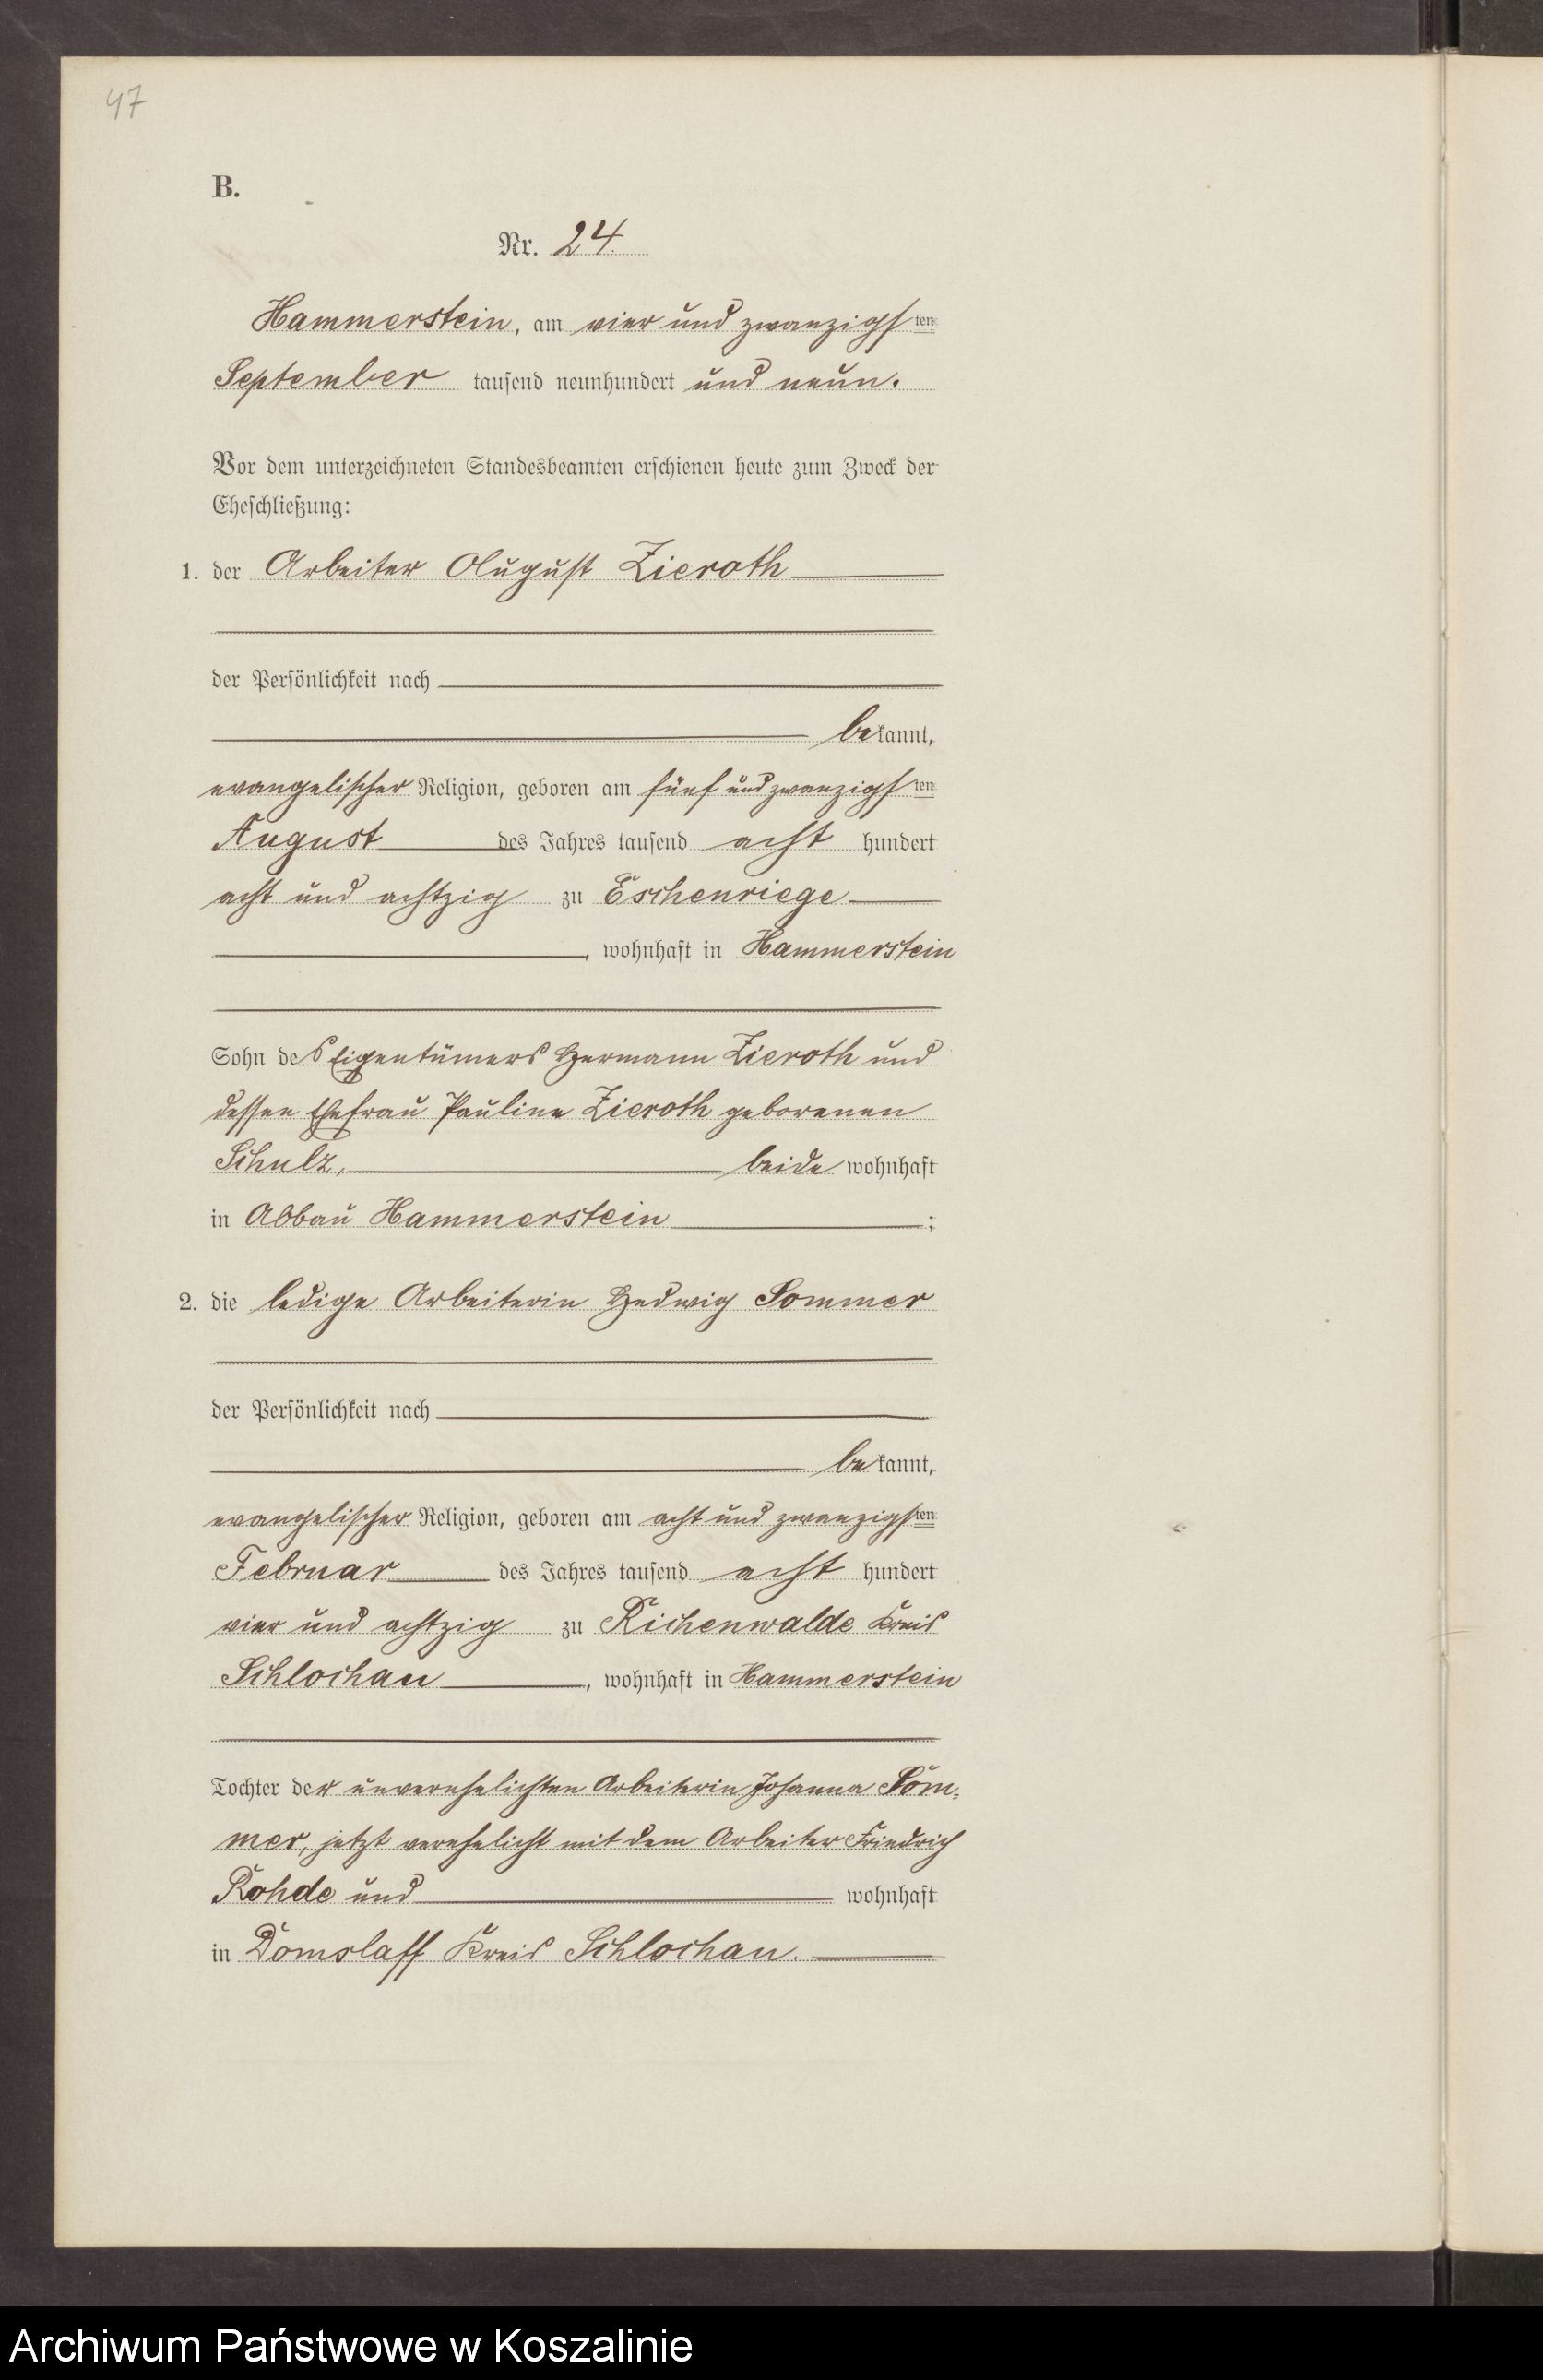 47
B.
Nr. 24.
Hammerstein, am vier und zwanzigsten
September tausend neunhundert und neun.
Vor dem unterzeichneten Standesbeamten erschienen heute zum Zweck der
Eheschließung:
1. der Arbeiter August Zieroth
der Persönlichkeit nach
bekannt,
evangelischer Religion, geboren am fünf und zwanzigsten
August des Jahres tausend acht hundert
acht und achtzig zu Eschenriege
, wohnhaft in Hammerstein
Sohn des Eigentümers Hermann Zieroth und
dessen Ehefrau Pauline Zieroth geborenen
Schulz, beide wohnhaft
in Abbau Hammerstein ;
2. die ledige Arbeiterin Hedwig Sommer
der Persönlichkeit nach
bekannt,
evangelischer Religion, geboren am acht und zwanzigsten
Februar des Jahres tausend acht hundert
vier und achtzig zu Richenwalde Kreis
Schlochau , wohnhaft in Hammerstein
Tochter der unverehelichten Arbeiterin Johanna Som-
mer, jetzt verehelicht mit dem Arbeiter Friedrich
Rohde und wohnhaft
in Domslaff Kreis Schlochau.
Archiwum Państwowe w Koszalinie